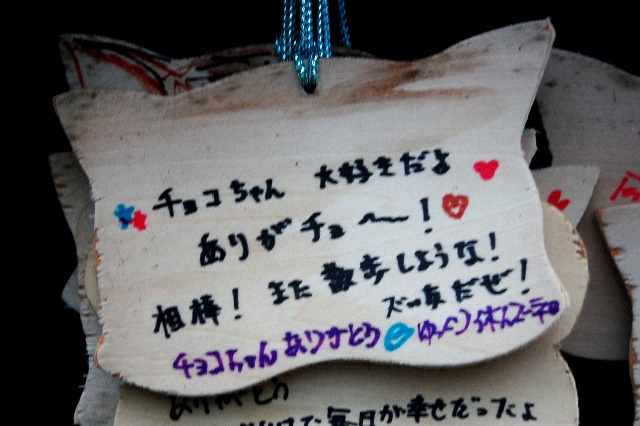 チョコちゃん 大好きだよ
ありがチョ〜!
相棒! また散歩しような!
ズッ友だぜ!
チョコちゃんありがとう ゆっくり休んで
ありがとう
毎日が幸せだったよ